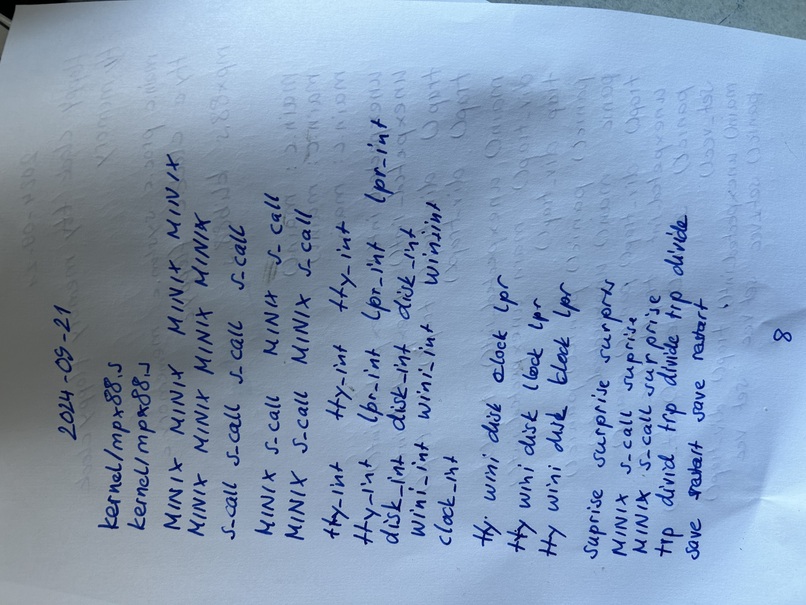 2024-05-21
kernel/mpx88.s
kernel/mpx88.s
MINIX MINIX MINIX MINIX MINIX
MINIX MINIX MINIX MINIX
s-call s-call s-call s-call
MINIX s-call MINIX s-call
MINIX s-call MINIX s-call
tty-int tty-int tty-int
tty-int lpr-int lpr-int lpr-int
disk-int disk-int disk-int
wini-int wini-int winiint
clock-int
tty wini disk clock lpr
tty wini disk clock lpr
tty wini disk block lpr
suprise surprise surpris
MINIX s-call suprise
MINIX s-call surprise
trp divid trp divide trp divide
save restart save restart
8